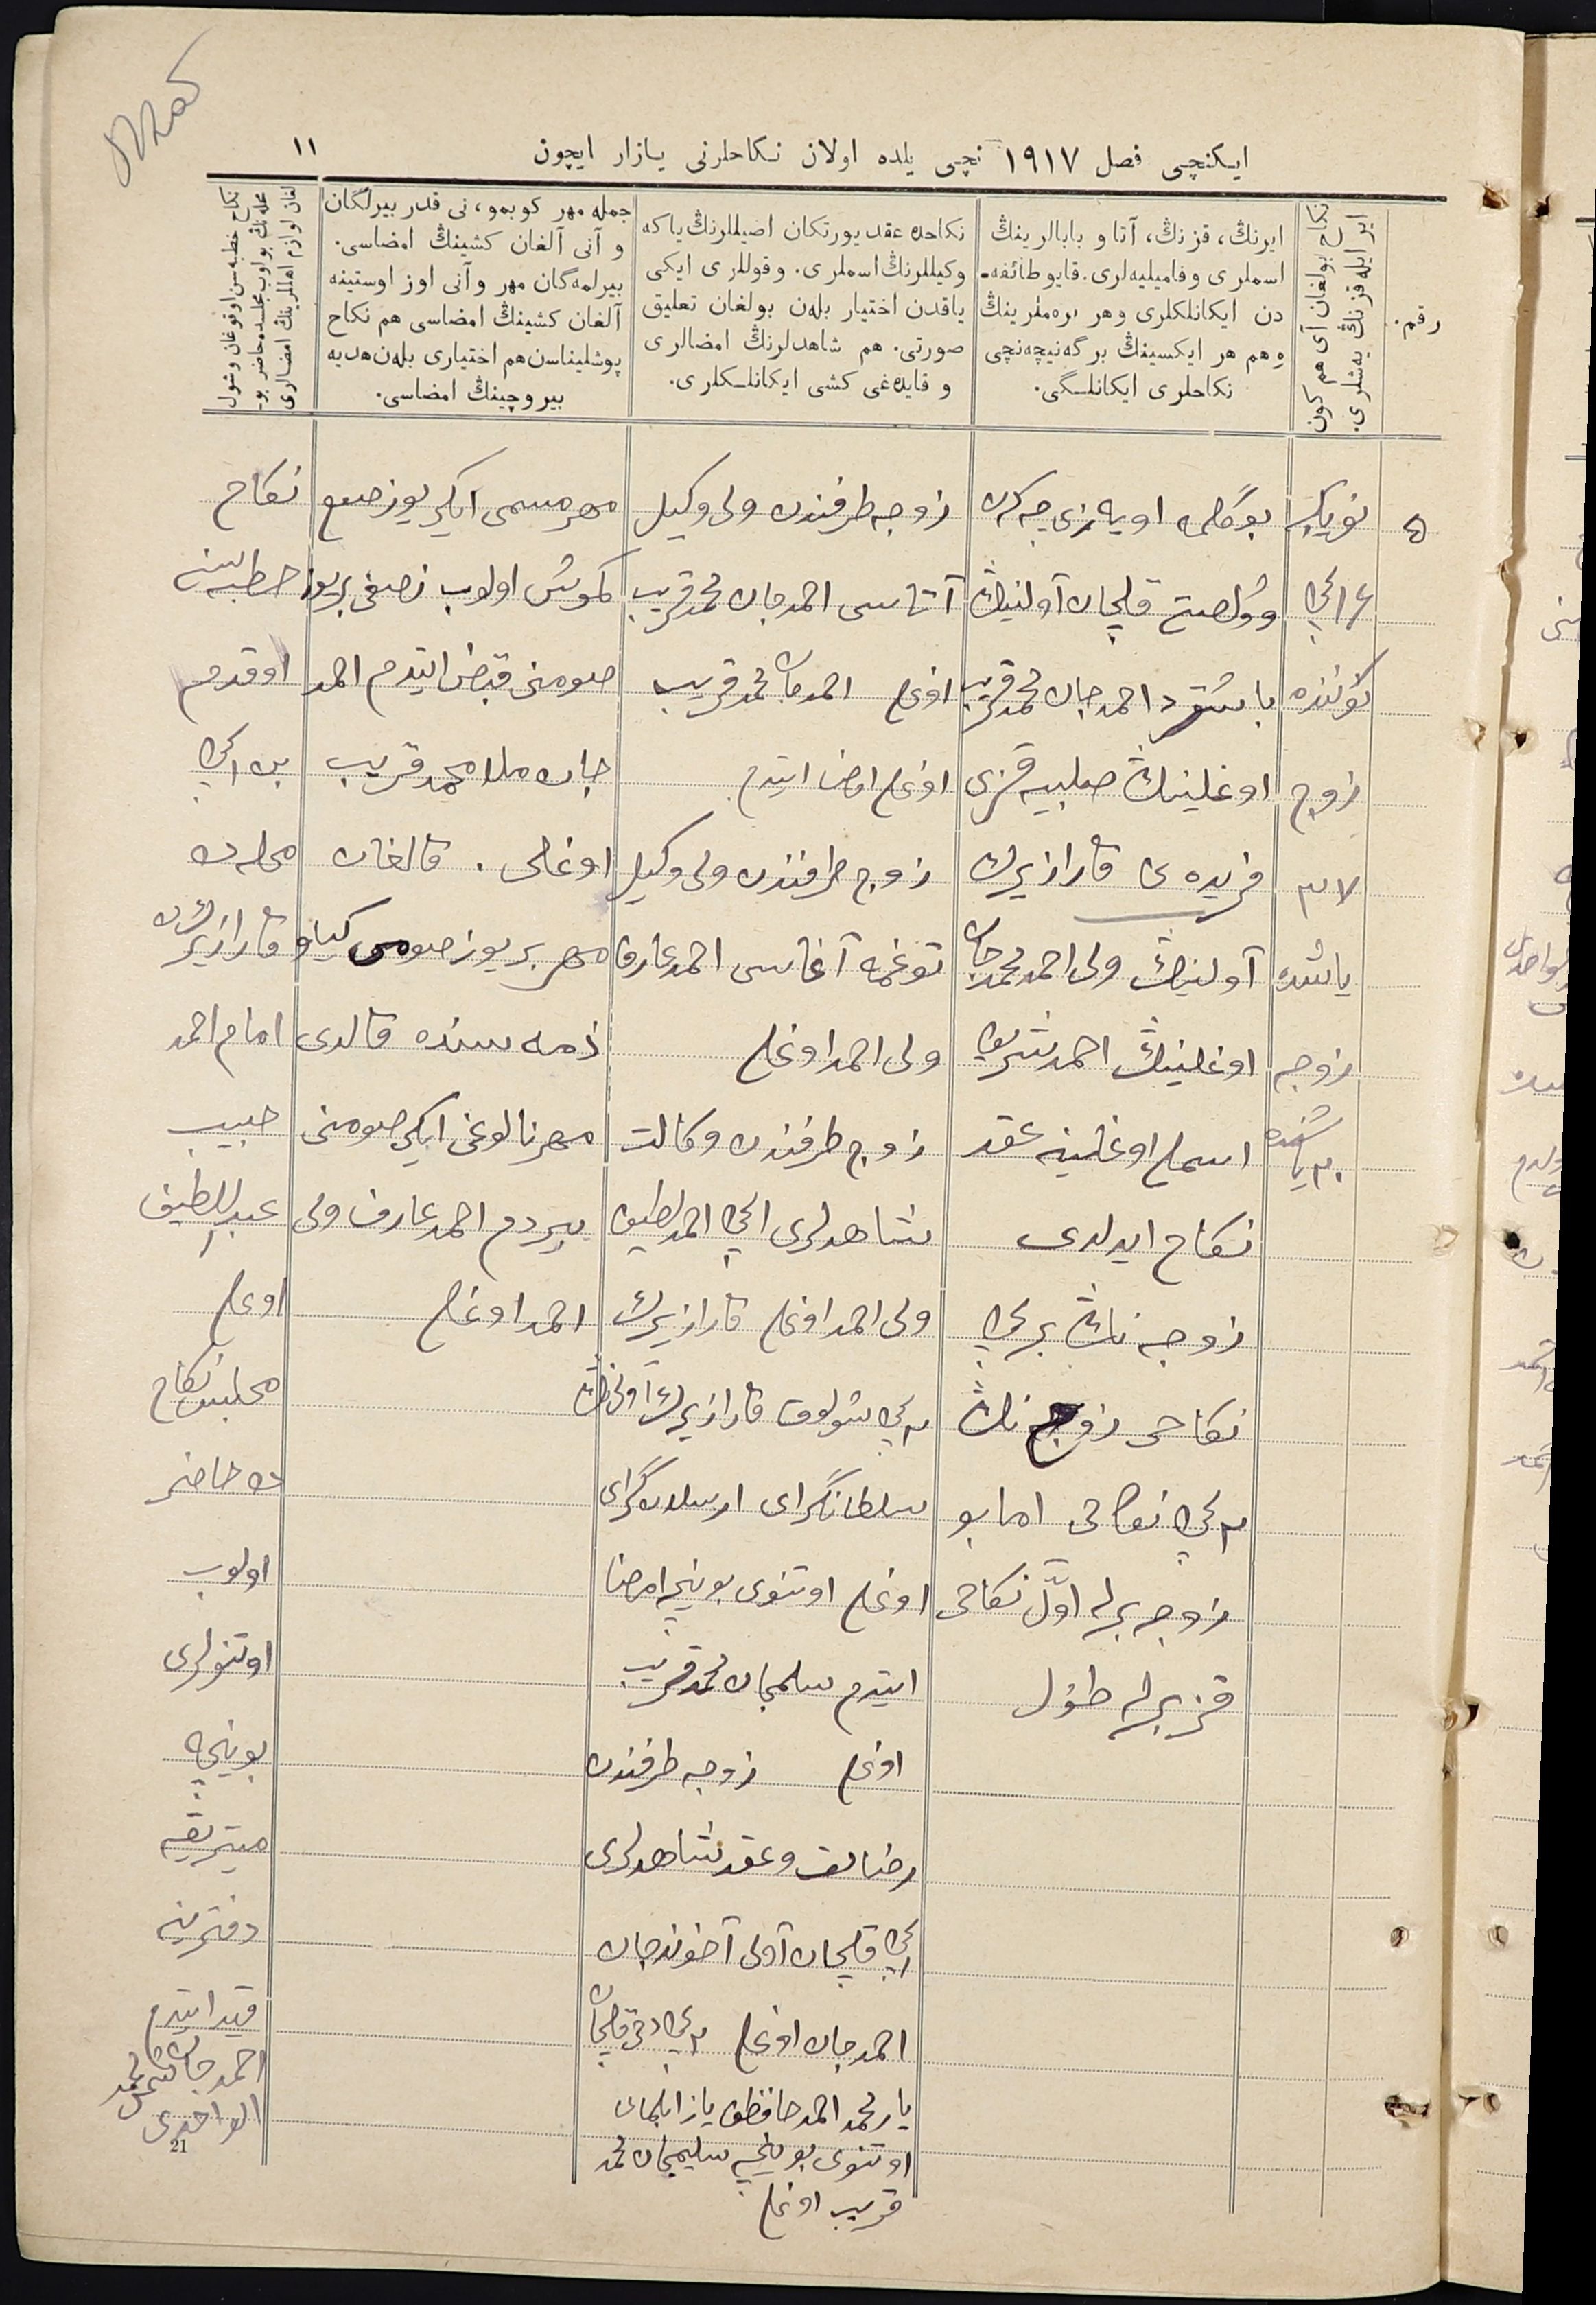 ایکنچی فصل ١٩١٧ نچی یلده اولان نکاحلرنی یازار ایچون
١١
رقم.
نکاح بولغان آی هم کون
ایر ایله قزنڭ یەشلری.
ایرنڭ، قزنڭ، آتا و بابالرینڭ
اسملری وفامیلیەلری. قایو طائفه-
دن ایکانلکلری وهر
هم هر ایکسینڭ برگه نیچه‌نچی
نکاحلری ایکانلـگی.
نکاحده عقد یورتکان اصیللرنڭ یاکه
وکیللرنڭ اسملری. وقوللری ایکی
یاقدن اختیار بلەن بولغان تعلیق
صورتی. هم شاهدلرنڭ امضالری
و قایداغی کشی ایکانلـکلری.
جمله مهر کوبمو، نی قدر بیرلگان
و آنی آلغان کشینڭ امضاسی.
بیرلمەگان مهر و آنی اوز اوستینه
آلغان کشینڭ امضاسی هم نکاح
پوشلیناسن هم اختیاری بلەن هدیه
بیروچینڭ امضاسی.
نکاح خطبه‌سن اوقوغان وشول
محله‌نڭ بولوب مجلسده حاضر بو-
لغان لوازم اهللرینڭ امضالری
٥
نویابر
کوننده
زوج
٢٧
یاشده
زوجه
٢٠ یاشنده
بوگلمه اویه‌زی چه‌کان
وولصت قلچان آولنینڭ
باشقرد احمدجان محمدقریب
اوغلینڭ صلبیه قزی
فریده نی قارازیرك
آولنینڭ ولی احمد محمدجان
اوغلینڭ احمدشریف
اسملی اوغلینه عقد
نکاح ایدلدی
زوجه نڭ برنچی
نکاحی زوج نڭ
٢نچی نکاحی اما بو
زوجه برله اوّل نکاحی
قز برله طول
زوجه طرفندن ولی وکیل
آتاسی احمدجان محمدقریب
اوغلی احمدجان محمدقریب
اوغلی امضا ایتدم
زوج طرفندن ولی وکیل
توغمه آغاسی احمدعارف
ولی احمد اوغلی
زوج طرفندن وکالت
شاهدلری ١نچی احمدلطیف
ولی احمد اوغلی قارازیرك
٢نچی شولوق قارازیرك آولی نڭ
سلطانگرای ارسلانگرای
اوغلی اوتنوی بوینچه امضا
ایتدم سلمجان محمدقریب
اوغلی زوجه طرفندن
رضالق وعقد شاهدلری
١نچی قلچان آولی آخوندجان
احمدجان اوغلی ٢نچی دخی قلچان
یارمحمد احمدحافظ یازا بلمای
اوتنوی بوینچه سلیمجان محمد
قریب اوغلی
مهر مسمی ایکی یوز صوم
کموش اولوب نصفی بر یوز
صومنی قبض ایتدم احمد
جان ملا محمدقریب
اوغلی. قالغان
مهر بر یوز صومی کیاو
ذمه سنده قالدی
مهر نالوغی ایکی صومنی
بیردم احمدعارف ولی
احمد اوغلی
نکاح
خطبه‌سنی
اوقدم
بن ١نچی
محله‌ن
قارازیرك
امام احمد
حبیب
عبداللطیف
اوغلی
مجلس نکاح
ده حاضر
اولوب
اوتنولری
بوینچه
میتریقه
دفترینه
قید ایتدم
21